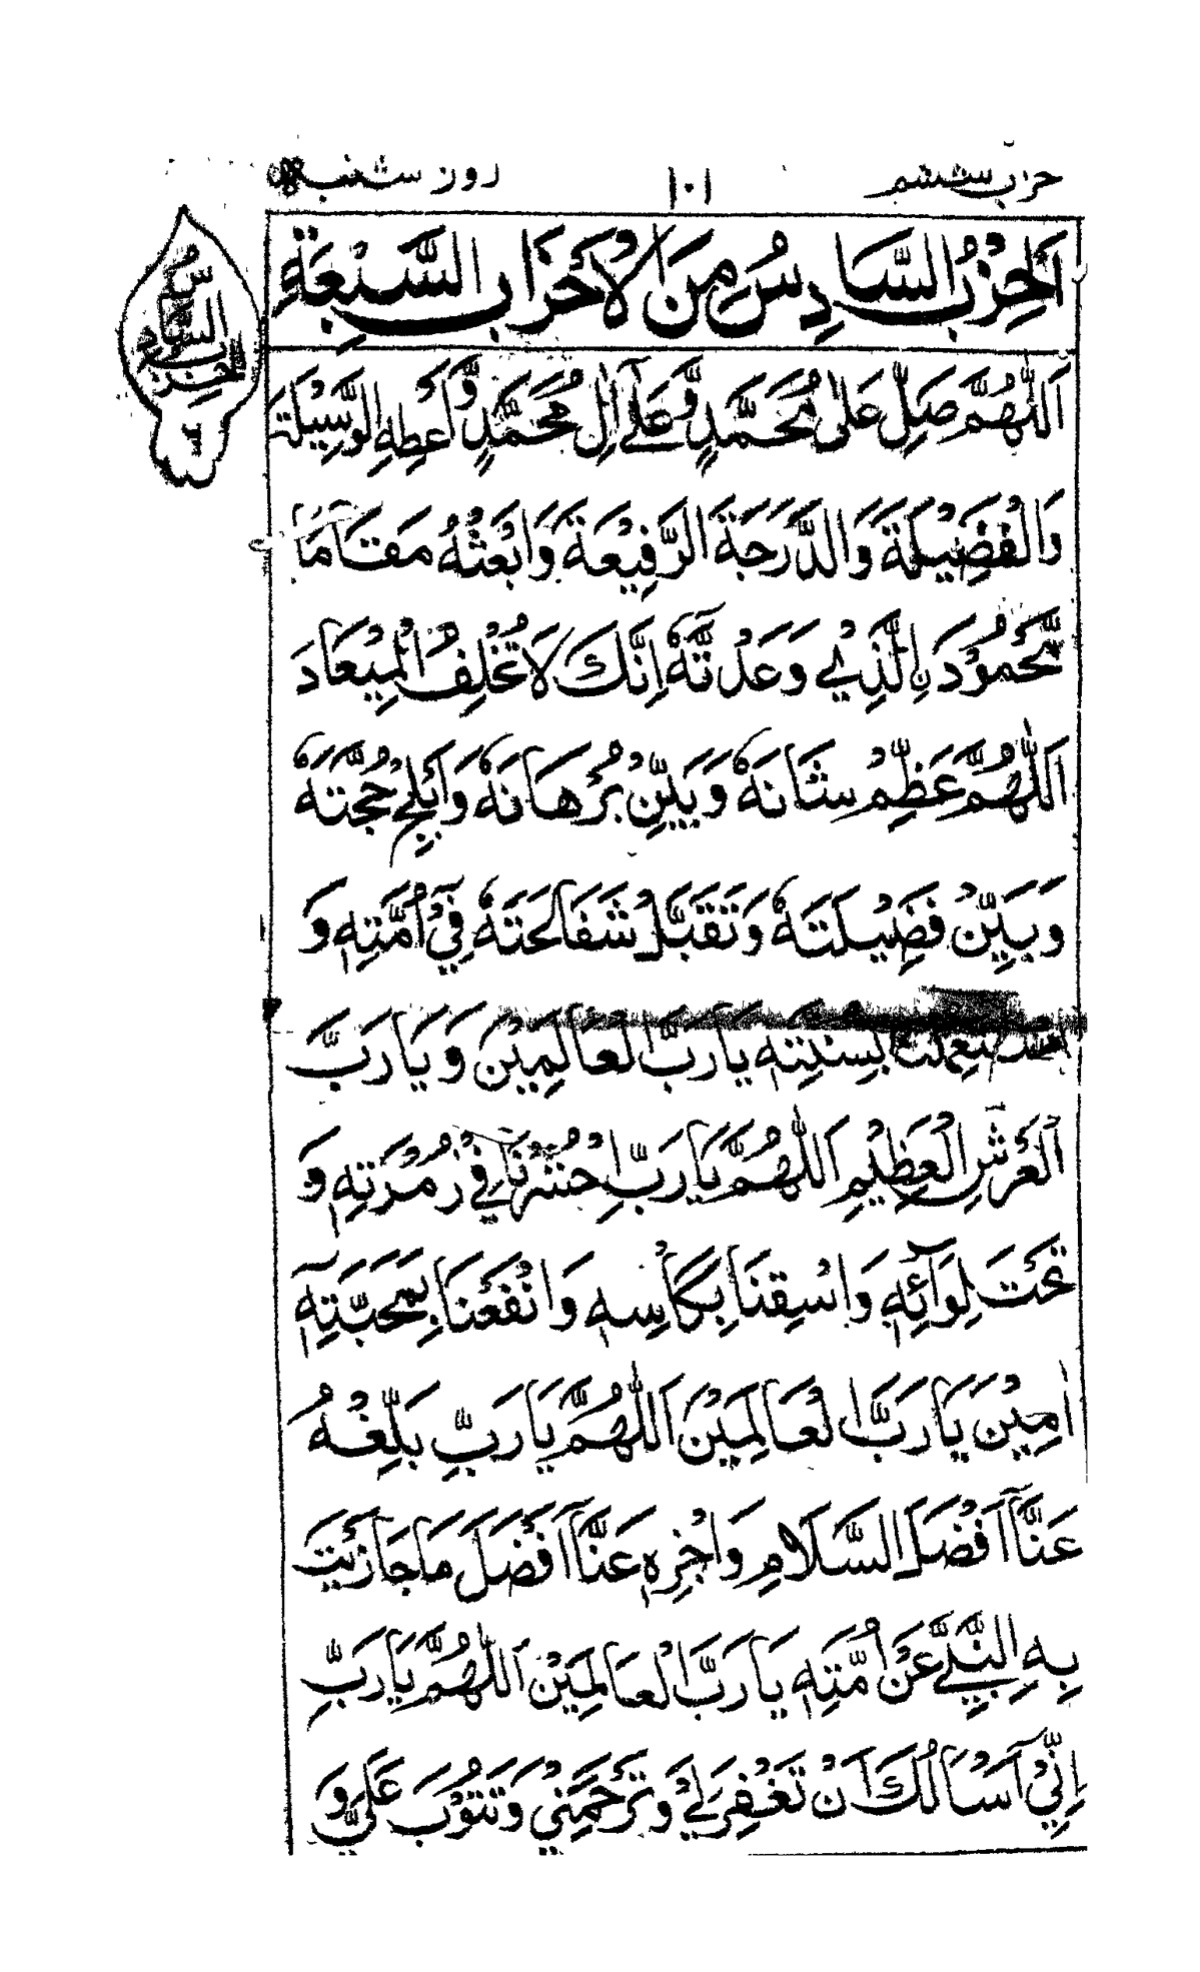 حزب ششم ١٠١ روز شنبه
اَلْحِزْبُ السَّادِسُ مِنَ الْاَحْزَابِ السَّبْعَةِ
اَللّٰهُمَّ صَلِّ عَلٰی مُحَمَّدٍ وَّعَلٰٓی اٰلِ مُحَمَّدٍ وَّاَعْطِهِ الْوَسِیْلَةَ
وَالْفَضِیْلَةَ وَالدَّرَجَةَ الرَّفِیْعَةَ وَابْعَثْهُ مَقَامًا
مَّحْمُوْدَنِ الَّذِیْ وَعَدْتَّهٗٓ اِنَّكَ لَا تُخْلِفُ الْمِیْعَادَ
اَللّٰهُمَّ عَظِّمْ شَانَهٗ وَبَیِّنْ بُرْهَانَهٗ وَاَبْلِجْ حُجَّتَهٗ
وَبَیِّنْ فَضِیْلَتَهٗ وَتَقَبَّلْ شَفَاعَتَهٗ فِیْٓ اُمَّتِهٖ وَ
بِسُنَّتِهٖ یَا رَبَّ الْعَالَمِیْنَ وَیَا رَبَّ
الْعَرْشِ الْعَظِیْمِ اَللّٰهُمَّ یَا رَبِّ احْشُرْنَا فِیْ زُمْرَتِهٖ وَ
تَحْتَ لِوَآئِهٖ وَاسْقِنَا بِكَاْسِهٖ وَانْفَعْنَا بِمَحَبَّتِهٖٓ
اٰمِیْنَ یَا رَبَّ الْعَالَمِیْنَ اَللّٰهُمَّ یَا رَبِّ بَلِّغْهُ
عَنَّآ اَفْضَلَ السَّلَامِ وَاجْزِهٖ عَنَّآ اَفْضَلَ مَا جَازَیْتَ
بِهِ النَّبِیَّ عَنْ اُمَّتِهٖ یَا رَبَّ الْعَالَمِیْنَ اَللّٰهُمَّ یَا رَبِّ
اِنِّیْٓ اَسْاَلُكَ اَنْ تَغْفِرَ لِیْ وَتَرْحَمَنِیْ وَتَتُوْبَ عَلَیَّ وَ
الحزب السادس